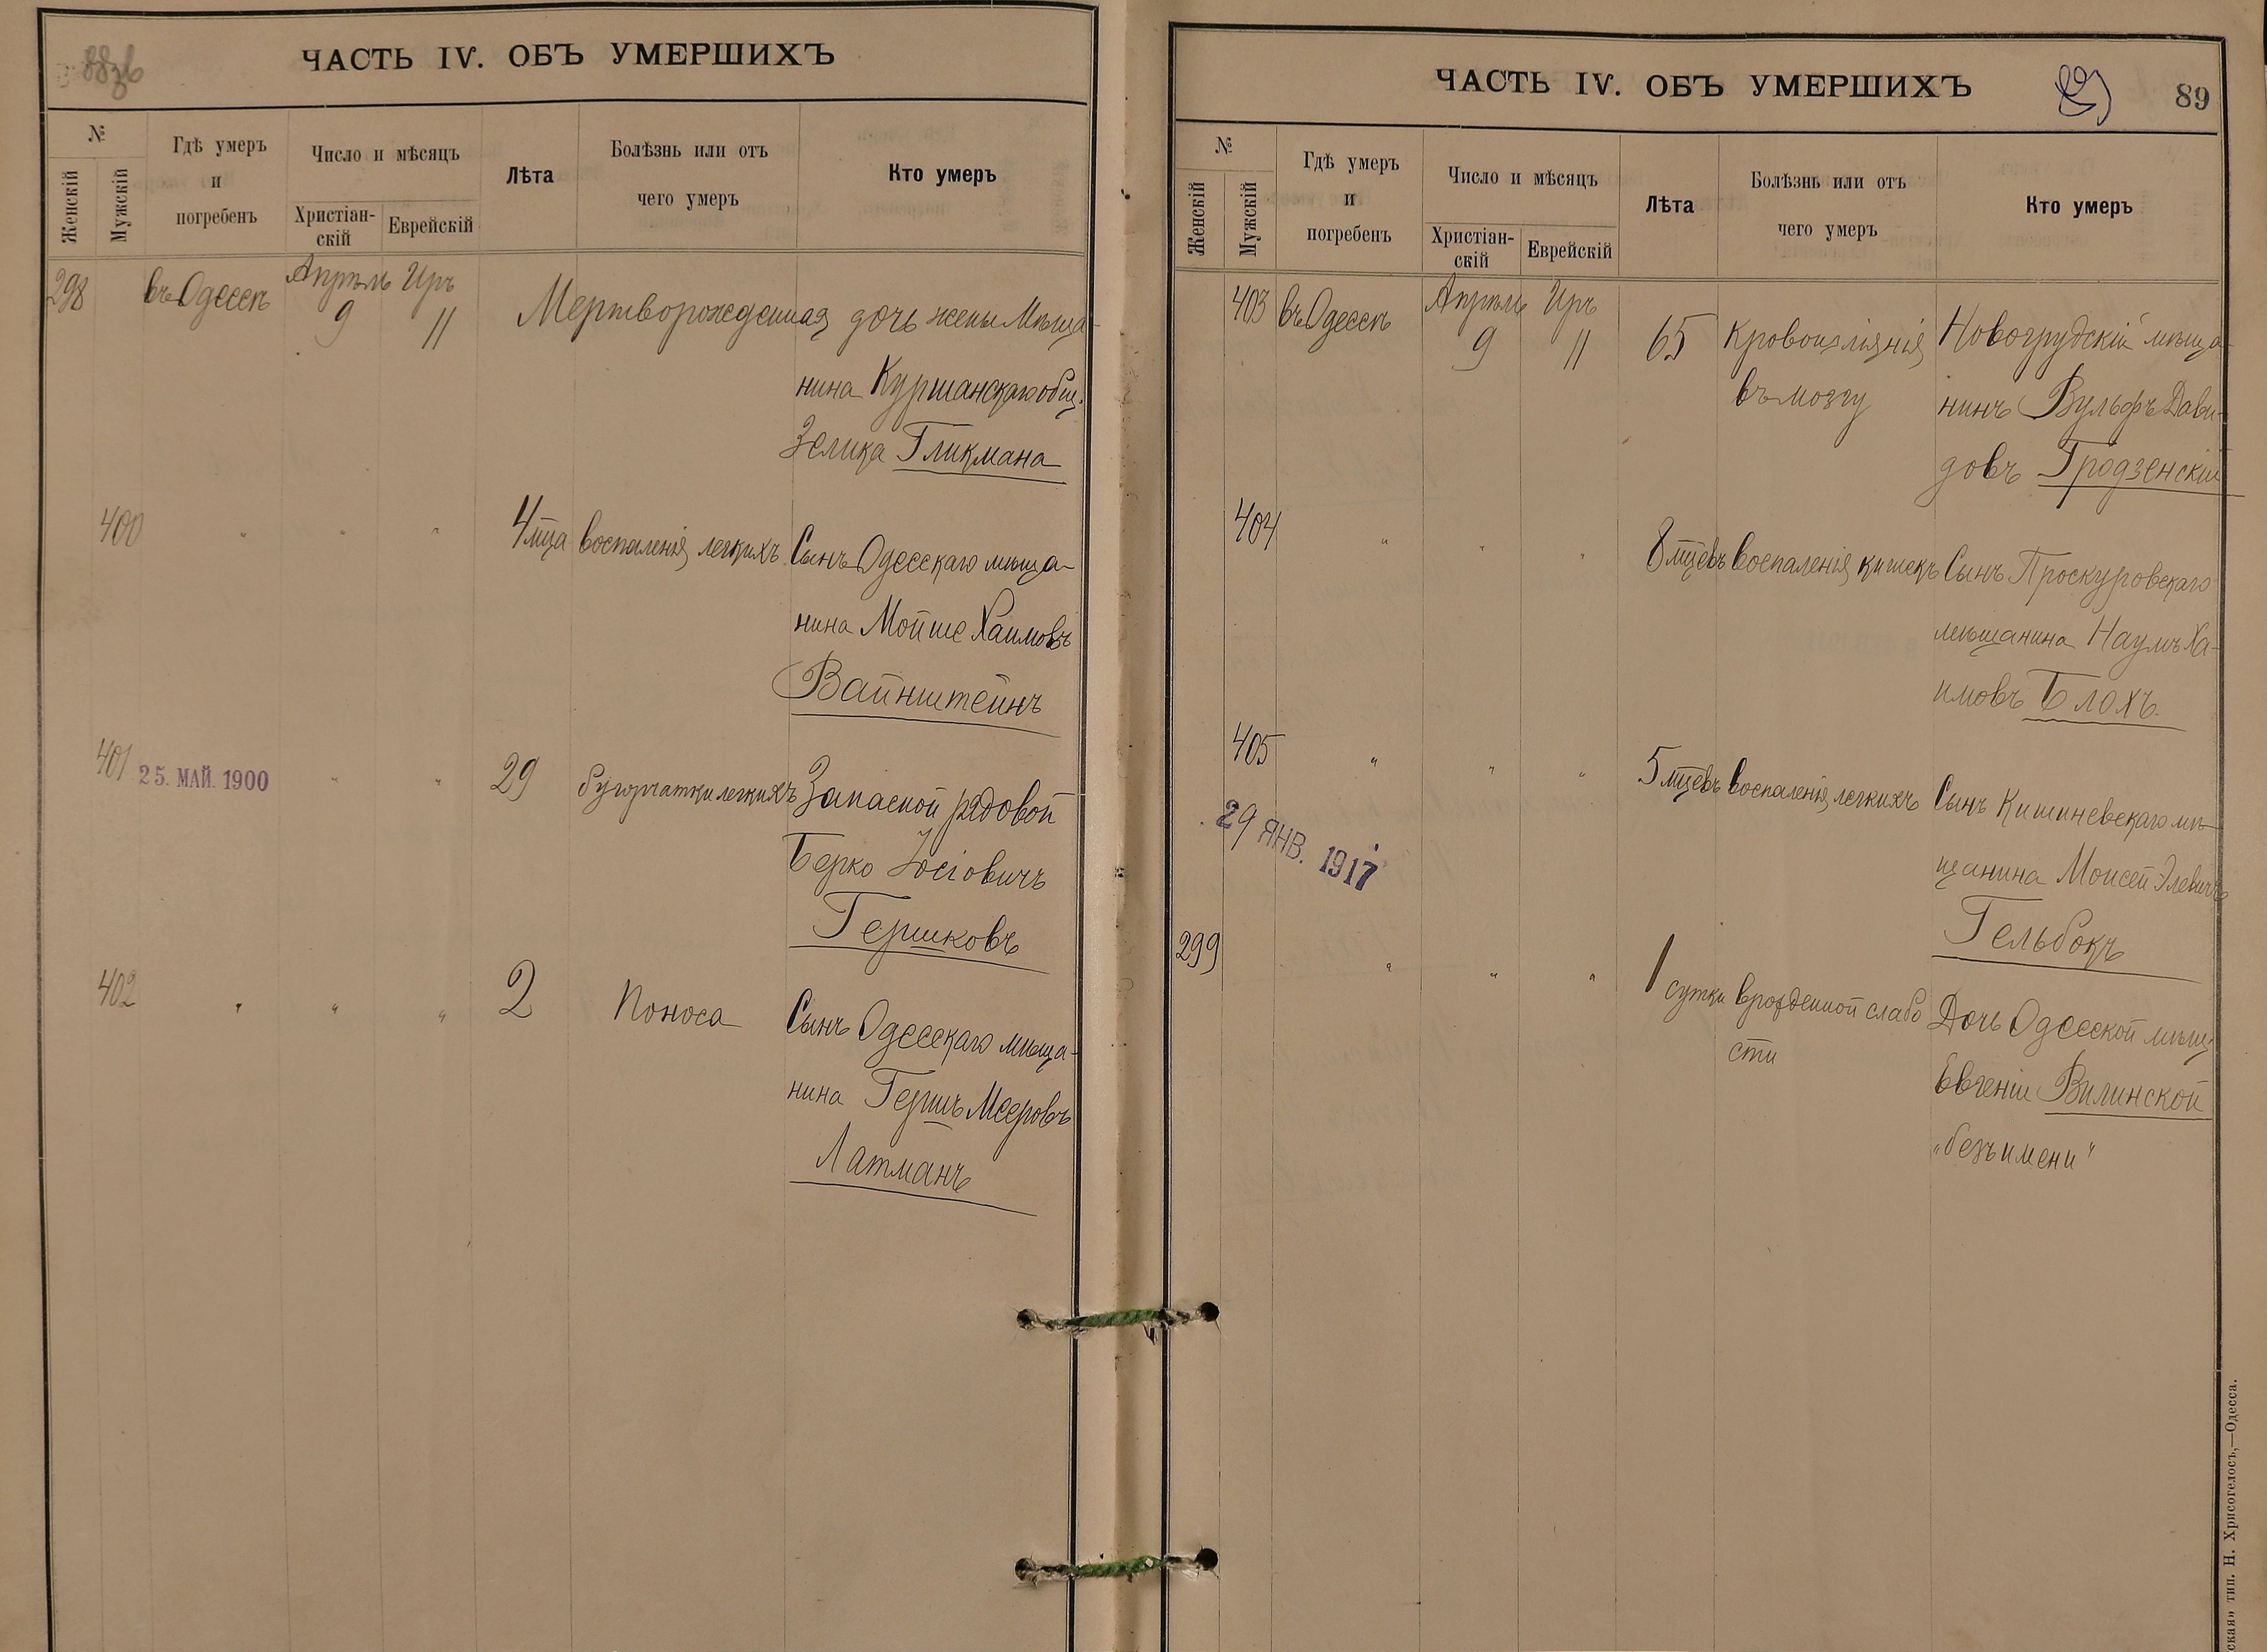 ЧАСТЬ IV. ОБЪ УМЕРШИХЪ
№
Женскій
Мужскій
Гдѣ умеръ
и
погребенъ
Число и мѣсяцъ
Христіан-
скій
Еврейскій
Лѣта
Болѣзнь или отъ
чего умеръ
Кто умеръ
298 въ Одессѣ Апрѣль Иръ
9 11 Мертворожденная дочь жены Мѣща-
нина Куршанскаго общ.
Зелика Гликмана
400 " " " 4 мца воспаленія легкихъ Сынъ Одесскаго мѣща-
нина Мойше Хаимовъ
Вайнштейнъ
401 25. МАЙ. 1900 " " 29 бугорчатки легкихъ Запасной рядовой
Берко Іосіовичъ
Гершковъ
402 " " " 2 Поноса Сынъ Одесскаго мѣща-
нина Гершъ Мееровъ
Латманъ
ЧАСТЬ IV. ОБЪ УМЕРШИХЪ
89
№
Женскій
Мужскій
Гдѣ умеръ
и
погребенъ
Число и мѣсяцъ
Христіан-
скій
Еврейскій
Лѣта
Болѣзнь или отъ
чего умеръ
Кто умеръ
403 въ Одессѣ Апрѣль Иръ
9 11 65 Кровоизліянія Новогрудскій мѣща-
въ мозгу нинъ Вульфъ Дави-
довъ Гродзенскій
404 " " " 8 мцевъ воспаленія кишекъ Сынъ Проскуровскаго
мѣщанина Наумъ Ха-
имовъ Блохъ.
405 " " " 5 мцевъ воспаленія легкихъ Сынъ Кишиневскаго мѣ-
щанина Моисей Элевичъ
Гельбокъ
29 ЯНВ. 1917
299 " " " 1 сутки врожденной слабо Дочь Одесской мѣщ.
сти Евгеніи Вилинской
"безъ имени"
ская» тип. Н. Хрисогелосъ,—Одесса.